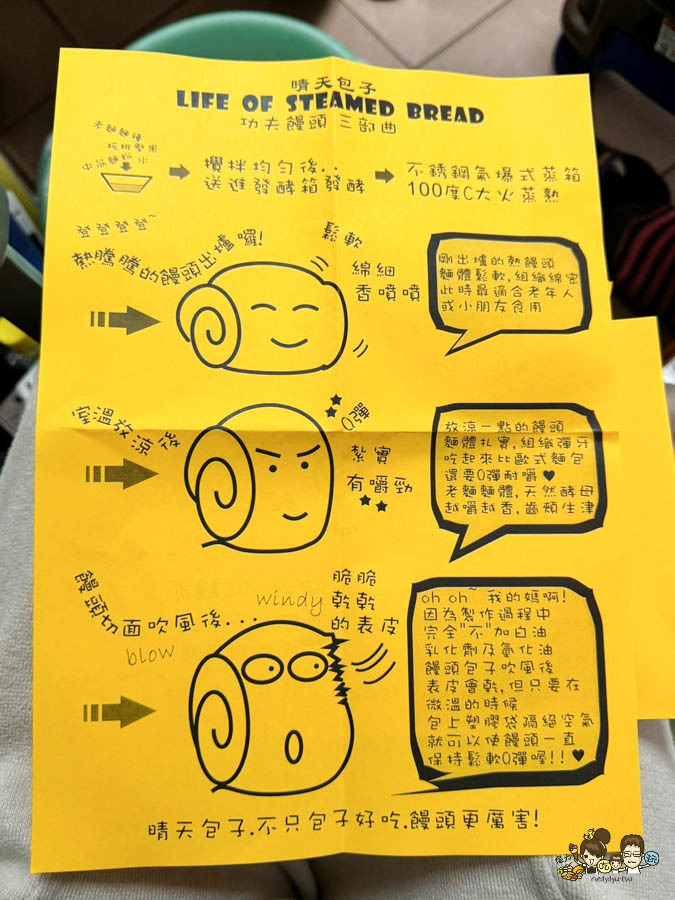 晴天包子
LIFE OF STEAMED BREAD
功夫饅頭 三部曲
老麵麵種
核桃堅果
中筋麵粉 水
攪拌均勻後..
送進發酵箱發酵
不銹鋼氣爆式蒸箱
100度C大火蒸熟
登登登登~
熱騰騰的饅頭出爐囉!
鬆軟
綿細
香噴噴
剛出爐的熱饅頭
麵體鬆軟,組織綿密
此時最適合老年人
或小朋友食用
室溫放涼後
Q彈
紮實
有嚼勁
放涼一點的饅頭
麵體扎實,組織彈牙
吃起來比歐式麵包
還要Q彈耐嚼♥
老麵麵體,天然酵母
越嚼越香,齒頰生津
饅頭切面吹風後...
blow
windy
脆脆
乾乾
的表皮
oh oh~ 我的媽啊!
因為製作過程中
完全"不"加白油
乳化劑及氫化油
饅頭包子吹風後
表皮會乾,但只要在
微溫的時候
包上塑膠袋隔絕空氣
就可以使饅頭一直
保持鬆軟Q彈喔!!♥
晴天包子.不只包子好吃.饅頭更厲害!